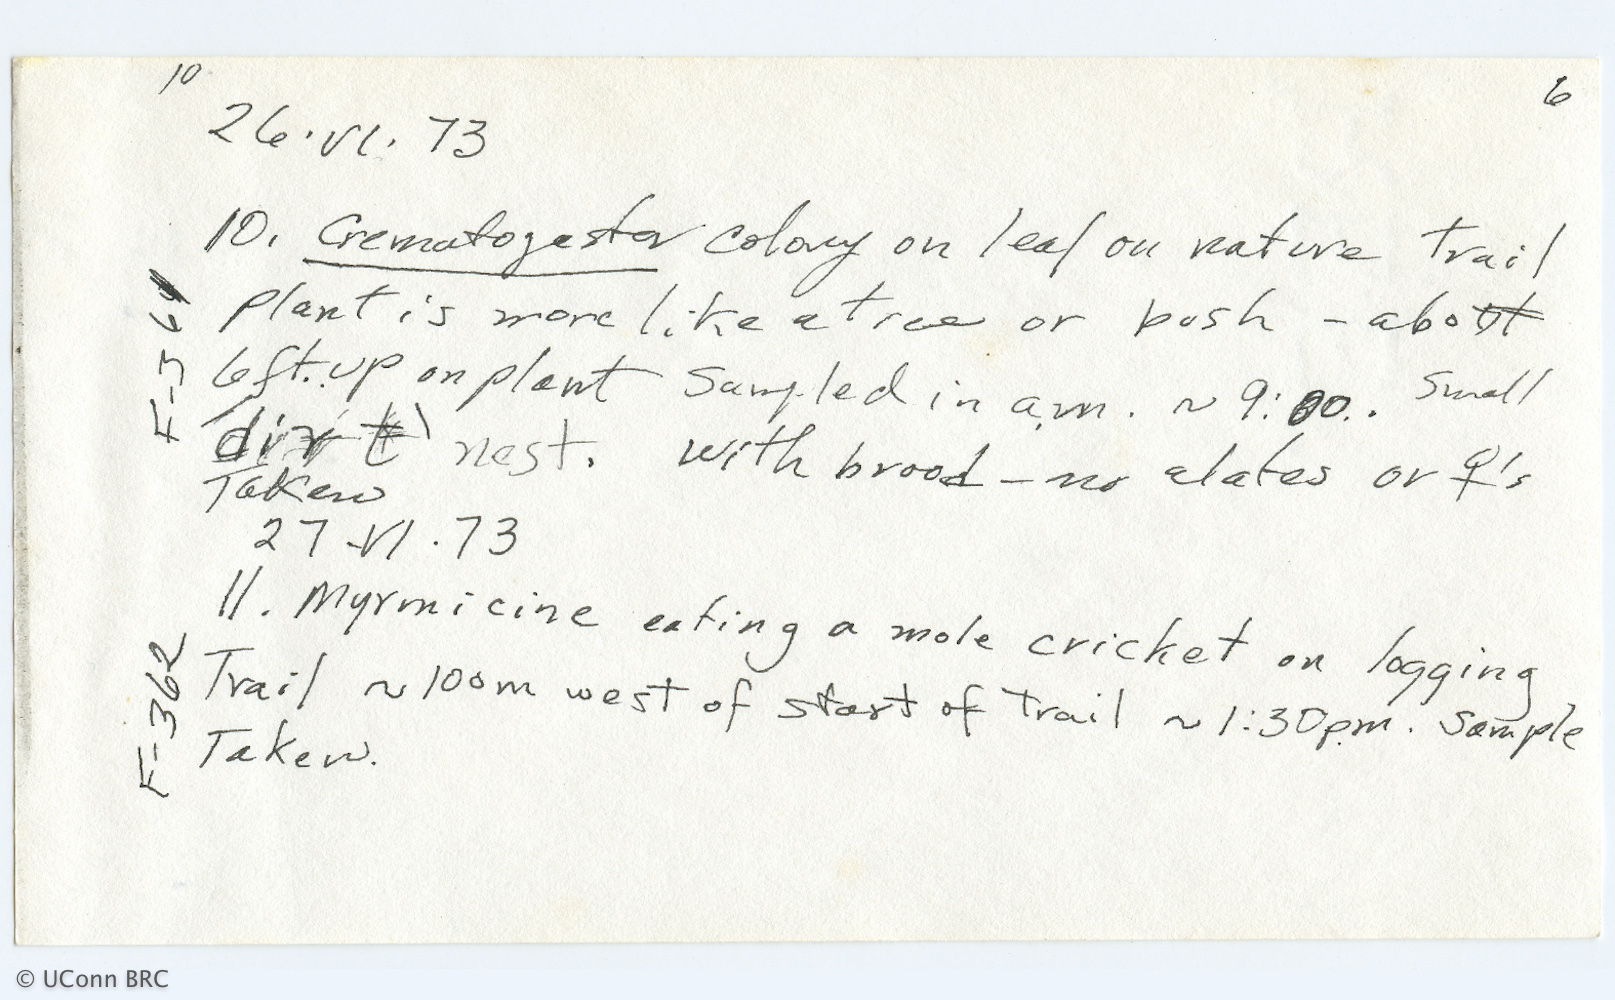 10
6
26.VI.73
10. Crematogaster colony on leaf on nature Trail
plant is more like a tree or bush - about
6ft. up on plant Sampled in a.m. ~ 9:00. Small
dirt nest. With brood - no alates or ♀'s
Taken
F-361
27.VI.73
11. Myrmicine eating a mole cricket on logging
Trail ~100m west of start of Trail ~1:30pm. Sample
Taken.
F-362
© UConn BRC